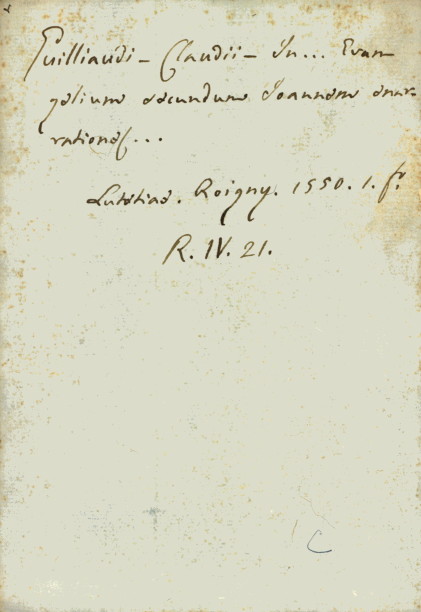 Guilliaudi - Claudii - In... Evan
gelium secundum Joannem enar-
rationes...
Lutetiae. Roigny. 1550. 1. fº.
R. IV. 21.
C